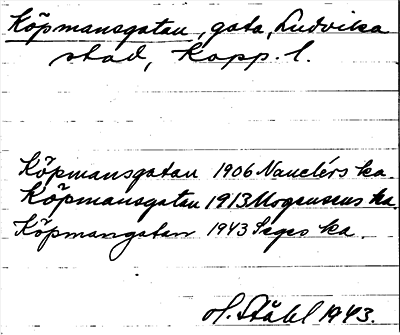 Köpmansgatan, gata, Ludvika
stad, Kopp. l.
Köpmansgatan 1906 Nauclérs ka.
Köpmansgatan 1913 Mogensens ka.
Köpmangatan 1943 Sages ka.
H. Ståhl 1943.